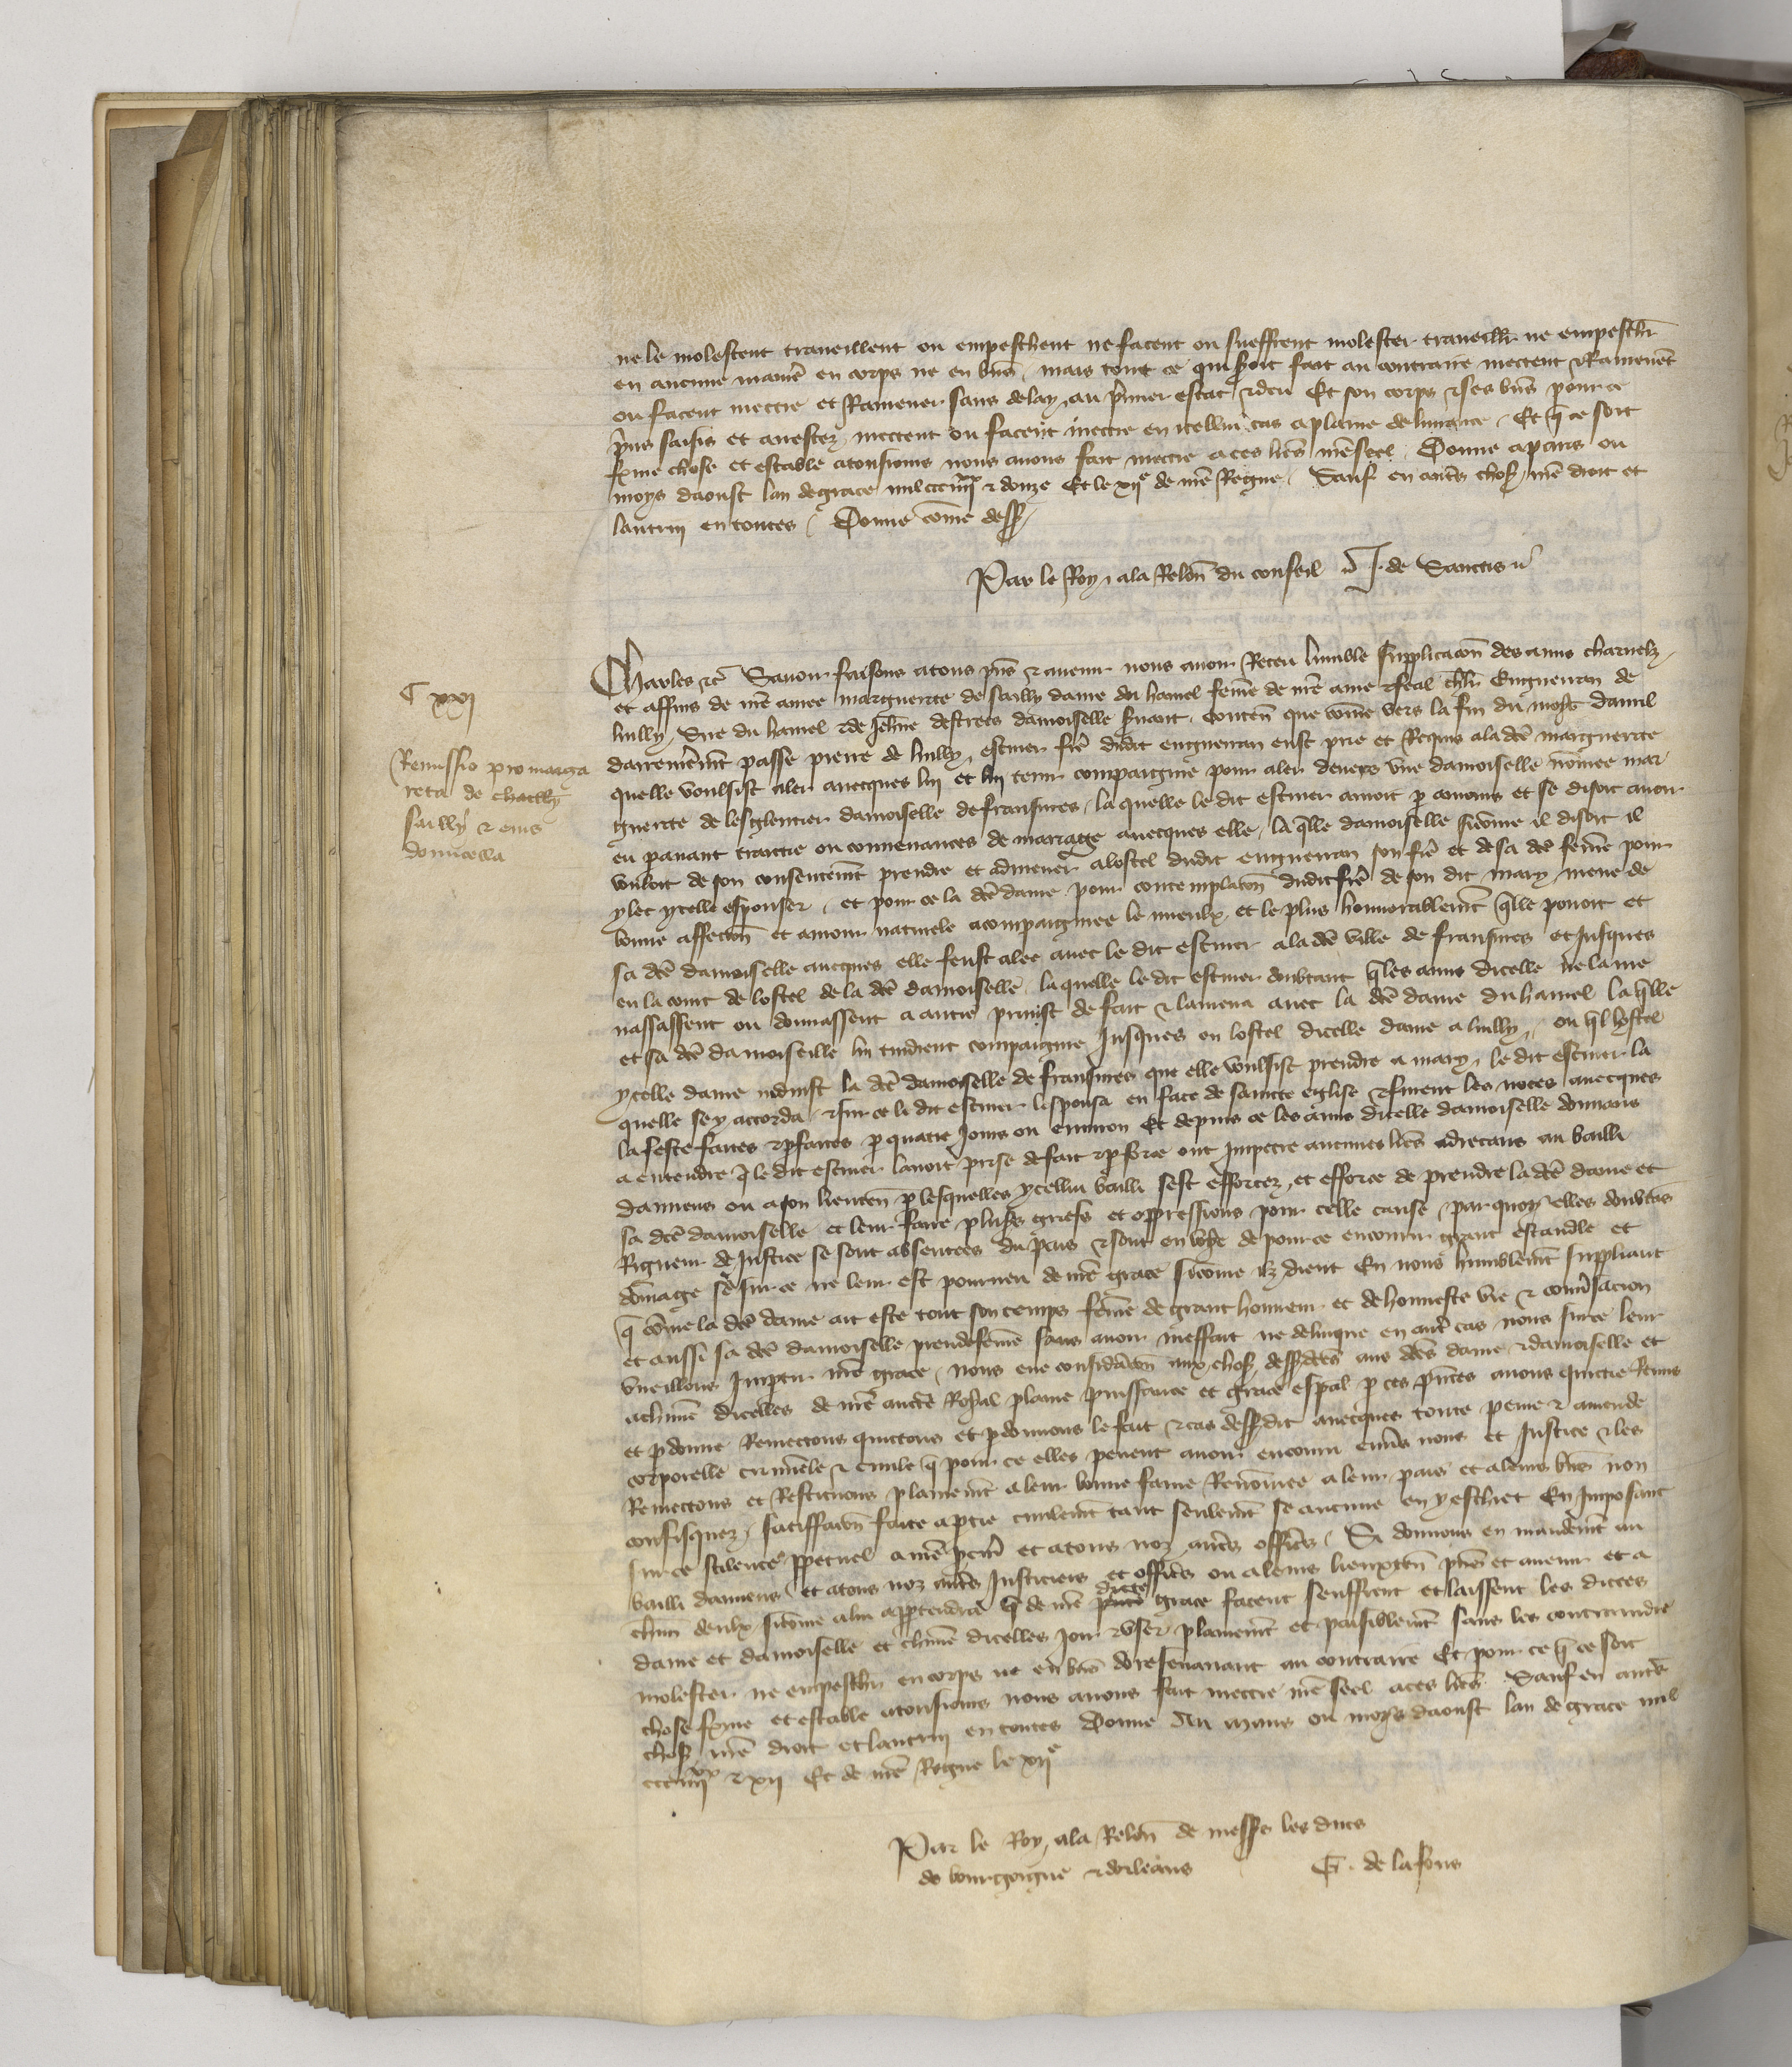 ne le molestent traveillent ou empeschent ne facent ou sueffrent molester traveillr ne empeschr
en aucune manie en corps ne en biens mais tout ce qui seroit fait au contraire mectent & Ramenent
ou facent mectre et Ramener sans delay au premier estat & deu Et son corps & ses biens pour ce
prins saisis et arrestez mectent ou facent mectre en icellui cas a plaine delivrance Et que ce soit
ferme chose et estable a tousjours nous avons fait mectre a ces lres nre seel Donne a paris ou
moys daoust lan de grace mil ccc iiiixx & douze Et le xiie de nre Regne Sauf en autres choses nre droit et
lautruy en toutes Donne comme dessus
Par le Roy a la Relon du conseil J. de Sanctis
Charles &c Savoir faisons a tous pns & avenir nous avoir Receu lumble supplicacon des amis charnelz
et affins de nre amee marguerite de sailly dame du hamel femme de nre ame & feal chlr Enguerran de
luilly Sire du hamel & de Jehne destrees damoiselle servant contenn que comme vers la fin du moys davril
darrenierement passe pierre de luilly escuier frere dudit enguerran eust prie et Requis a la dce marguerite
quelle voulsist aler avecques luy et luy tenir compaignie pour aler devers une damoiselle nommee mar
guerite de lesglentier damoiselle de fransures la quelle le dit escuier amoit par amours et se disoit avoir
eu paravant traictie ou convenances de mariage avecques elle la quelle damoiselle sicomme il disoit il
vouloit de son consentement prendre et admener a lostel dudit enguerran son frere et de sa dce femme pour
ylec ycelle espouser et pour ce la dce dame pour contemplacon dudit frere de son dit mary meue de
bonne affeccon et amour naturele acompaignee le mieulx et le plus honnorablement quelle povoit et
sa dce damoiselle avecques elle feust alee avec le dit escuier a la dce ville de fransures et Jusques
en la court de lostel de la dce damoiselle laquelle le dit escuier doubtant que les amis dicelle ne la me
nassassent ou donnassent a autre prinst de fait & lamena avec la dce dame du hamel la quelle
et sa dce damoiselle lui tindrent compaignie Jusques en lostel dicelle dame a luilly ou quel hostel
ycelle dame induist la dce damoiselle de fransures que elle voulsist prendre a mary le dit escuier la
quelle se y accorda & sur ce le dit escuier lespousa en face de saincte eglise & furent les noces avecques
la feste faites & parfaites par quatre Jours ou environ Et depuis ce les amis dicelle damoiselle donnans
a entendre que le dit escuier lavoit prise de fait & par force ont Impetre aucunes lres adrecans au bailli
damiens ou a son lieuten par lesquelles ycellui bailli sest efforcez et efforce de prendre la dce dame et
sa dce damoiselle et leur faire plusrs griefs et oppressions pour celle cause par quoy elles doubtans
Rigueur de Justice se sont absentees du pais & sont en voye de pour ce encourir grant escandle et
dommage se sur ce ne leur est pourveu de nre grace sicomme ilz dient En nous humblement suppliant
que comme la dce dame ait este tout son temps femme de grant honneur et de honneste vie & conversacion
et aussi sa dce damoiselle preudefemme sans avoir meffait ne delinque en autre cas nous sur ce leur
vueillons Impartir nre grace nous eue consideracon aux choses dessusdces aus dces dame & damoiselle et
a chune dicelles de nre aucte Royal plaine puissance et grace espal par ces pntes avons quictie Remis
et pardonne Remectons quictons et pardonnons le fait & cas dessusdit avecques toute peine & amende
corporelle criminele & civile que pour ce elles pevent avoir encouru envers nous et Justice & les
Remectons et Restituons plainement a leur bonne fame Renommee a leur pais et a leurs biens non
confisquez satiffacon faite a partie civilement tant seulement se aucune en y eschiet En Imposant
sur ce scilence perpetuel a nre procur et a tous noz autres officiers Si donnons en mandement au
bailli damiens et a tous noz autres Justiciers et officiers ou a leurs lieuxten pns et avenir et a
chun deulx sicomme a lui appartendra que de nre pnte dicte grace facent sueffrent et laissent les dictes
dame et damoiselle et chune dicelles Joir & user plainement et paisiblement sans les contraindre
molester ne empeschr en corps ne en biens doresenavant au contraire Et pour ce que ce soit
chose ferme et estable a tousjours nous avons fait mectre nre seel a ces lres Sauf en autres
choses nre droit et lautruy en toutes Donne Au mans ou moys daoust lan de grace mil
ccc iiiixx & xii Et de nre Regne le xiie
Par le Roy a la Relon de messrs les ducs
de bourgoigne & dorleans G. de la fons
C xxj
Remissio pro marga
reta de chailly
sailly & eius
domicella